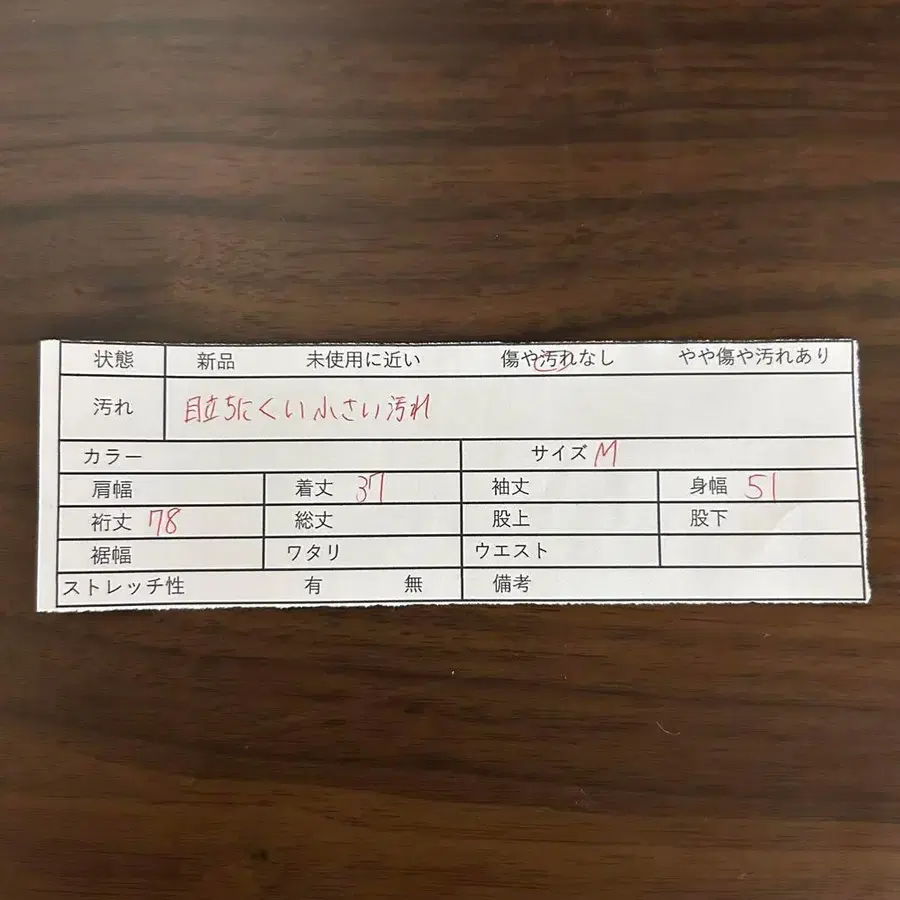 状態 新品 未使用に近い 傷や汚れなし やや傷や汚れあり
汚れ 目立ちにくい小さい汚れ
カラー サイズ M
肩幅 着丈 37 袖丈 身幅 51
裄丈 78 総丈 股上 股下
裾幅 ワタリ ウエスト
ストレッチ性 有 無 備考